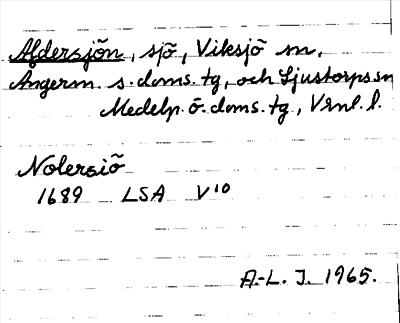 Aldersjön, sjö, Viksjö sn,
Ångerm. s. doms. tg, och Ljustorps sn
Medelp. ö. doms. tg., Vrnl. l.
Nolersiö
1689 LSA V10
A.-L. J. 1965.